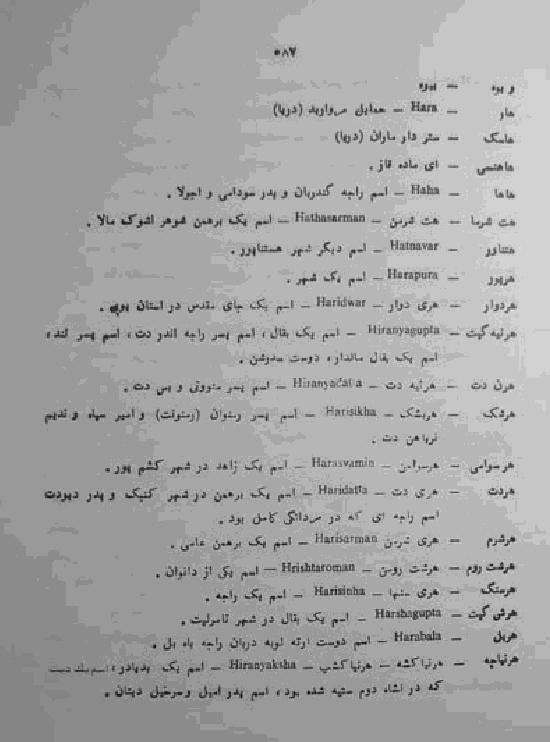 ۵۸۷
ویوه — ویوه
هار — Hara — حمایل مروارید (دریا)
هاسک — ستر دار ماران (دریا)
هاهنسی — ای ماده قاز .
هاها — Haha — اسم راجه گندربان و پدر سودامی و اجولا .
هت شرما — هت شرمن — Hathasarman — اسم یک برهمن شوهر اشوک مالا .
هتناور — Hatnavar — اسم دیگر شهر هستناپور .
هرپور — Harapura — اسم یک شهر .
هردوار — هری دوار — Haridwar — اسم یک جای مقدس در استان یوپی .
هرنیه گپت — Hiranyagupta — اسم یک بقال ، اسم پسر راجه اندر دت ، اسم پسر نند ،
اسم یک بقال مالدار ، دوست سدرشن .
هرن دت — هرنیه دت — Hiranyadatta — اسم پسر و پس دت .
هرشک — هریشک — Harisikha — اسم پسر رستوان (رستونت) و امیر سپاه و ندیم
نرباهن دت .
هرسوامی — هرسوامن — Harasvamin — اسم یک زاهد در شهر کشم پور .
هردت — هری دت — Haridatta — اسم یک برهمن در شهر کتیک و پدر دیودت
اسم راجه ای که در مردانگی کامل بود .
هرشرم — هری شرمن — Harisarman — اسم یک برهمن عامی .
هرشت روم — هرشت رومن — Hrishtaroman — اسم یکی از دانوان .
هرسنگ — هری سنها — Harisinha — اسم یک راجه .
هرش گپت — Harshagupta — اسم یک بقال در شهر تامرلیت .
هربل — Harabala — اسم دوست اوته لوبه دربان راجه باه بل .
هرنیاچه — هرنیا کشه — هرنیا کشپ — Hiranyaksha — اسم یک بدیادر ، اسم یک دیت
که در نشاء دوم ستیه شده بود ، اسم پدر امیل و سرخیل دیتان .